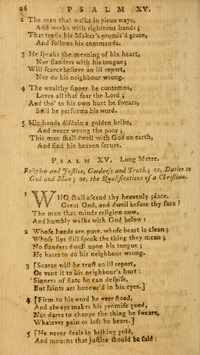 26 PSALM XV.
2 The man that walks in pious ways,
And works with righteous hands;
That trusts his Maker's promis'd grace,
And follows his commands.
3 He speaks the meaning of his heart,
Nor slanders with his tongue;
Will scarce believe an ill report,
Nor do his neighbour wrong.
4 The wealthy sinner he contemns,
Loves all that fear the Lord;
And tho' to his own hurt he swears,
Still he performs his word.
5 His hands disdain a golden bribe,
And never wrong the poor;
This man shall dwell with God on earth,
And find his heaven secure.
PSALM XV. Long Metre.
Religion and Justice, Goodness and Truth; or, Duties to
God and Man; or, the Qualifications of a Christian.
1 WHO shall ascend thy heavenly place,
Great God, and dwell before thy face?
The man that minds religion now,
And humbly walks with God below:
2 Whose hands are pure, whose heart is clean;
Whose lips still speak the thing they mean;
No slanders dwell upon his tongue;
He hates to do his neighbour wrong.
3 [Scarce will he trust an ill report,
Or vent it to his neighbour's hurt:
Sinners of state he can despise,
But saints are honour'd in his eyes.]
4 [Firm to his word he ever stood,
And always makes his promise good,
Nor dares to change the thing he swears,
Whatever pain or loss he bears.]
5 [He never deals in bribing gold,
And mourns that justice should be sold: